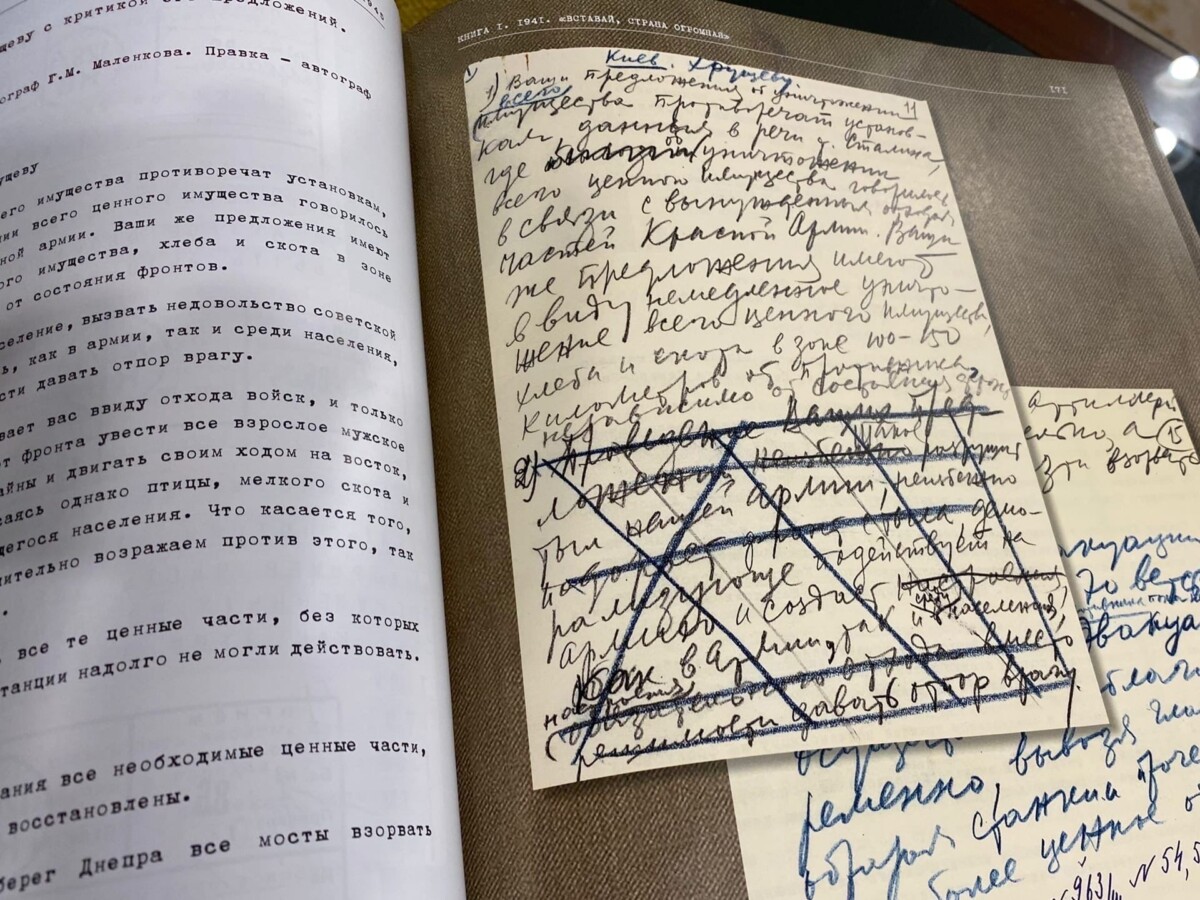 1945
щеву с критикой его предложений.
ограф Г.М. Маленкова. Правка — автограф
ущеву
его имущества противоречат установкам,
нии всего ценного имущества говорилось
ной армии. Ваши же предложения имеют
ого имущества, хлеба и скота в зоне
от состояния фронтов.
селение, вызвать недовольство советской
ь, как в армии, так и среди населения,
сти давать отпор врагу.
вает вас ввиду отхода войск, и только
от фронта увести все взрослое мужское
айны и двигать своим ходом на восток,
саясь однако птицы, мелкого скота и
щегося населения. Что касается того,
ительно возражаем против этого, так
.
, все те ценные части, без которых
танции надолго не могли действовать.
ания все необходимые ценные части,
восстановлены.
берег Днепра все мосты взорвать
КНИГА I. 1941. «ВСТАВАЙ, СТРАНА ОГРОМНАЯ»
171
Киев. Хрущеву
11
1) Ваши предложения об уничтожении
всего
имущества противоречат установ-
кам, данным в речи т. Сталина,
где об уничтожении
всего ценного имущества говорилось
в связи с вынужденным отходом
частей Красной Армии. Ваши
же предложения имеют
в виду немедленное уничто-
жение всего ценного имущества,
хлеба и скота в зоне 100-150
километров от противника,
независимо от состояния фронта
2) Проведение Ваших пред
такое
ложений неизбежно разрушит
тыл нашей армии, неизбежно
фронт с тыла, демо-
рализующе подействует на
армию и создаст
среди
как в Армии, так и населения,
настроения
обязательного отхода вместо
решимости давать отпор врагу.
артиллери
ельно, а 15
эти взорвать
эвакуа
ременно, вывозя гла
отбирая станки и проче
более ценное о
№ 54, 5